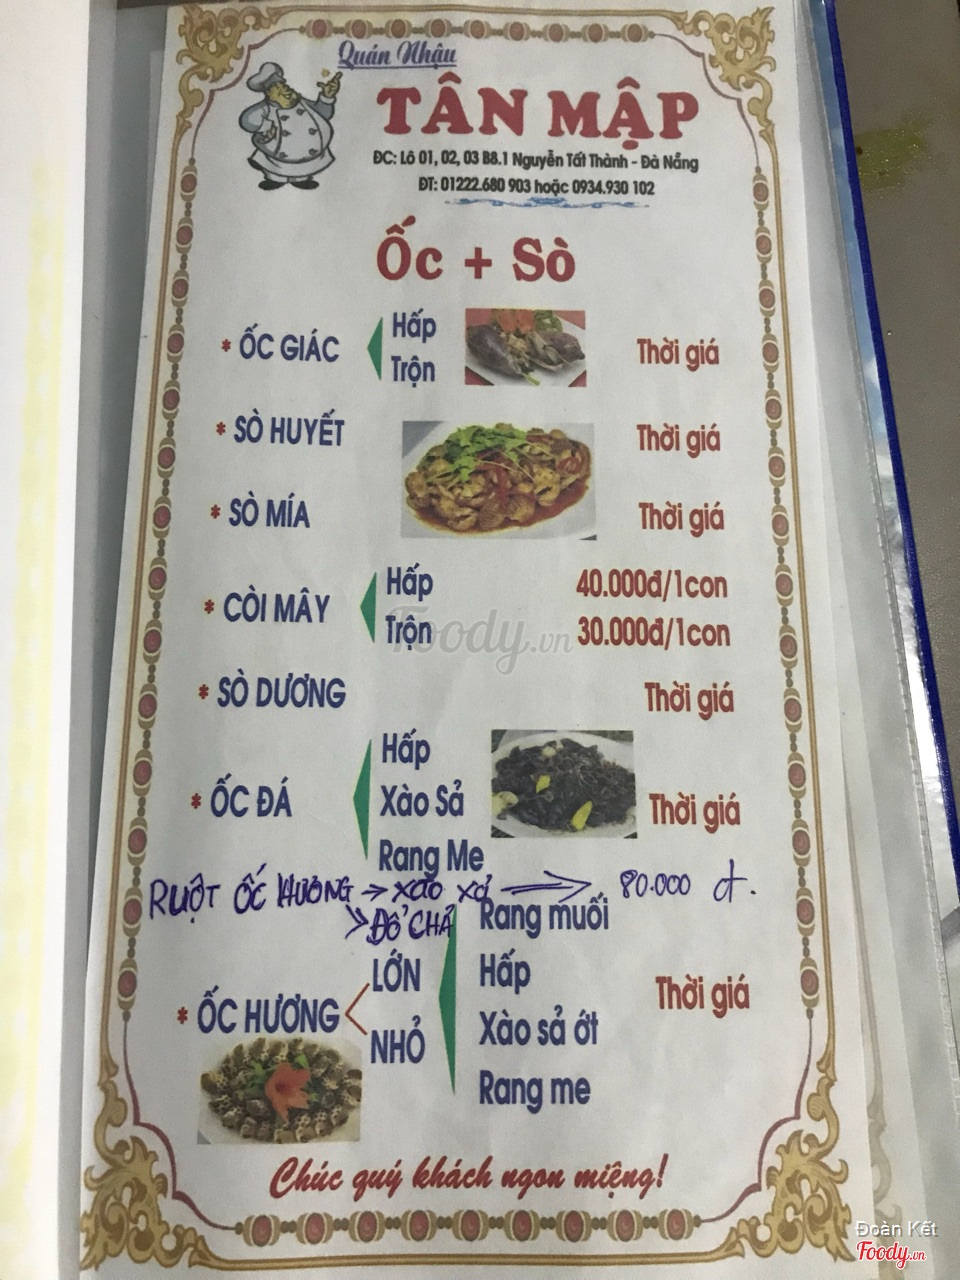 Quán Nhậu
TÂN MẬP
ĐC: Lô 01, 02, 03 B8.1 Nguyễn Tất Thành - Đà Nẵng
ĐT: 01222.680 903 hoặc 0934.930 102
Ốc + Sò
* ỐC GIÁC Hấp Thời giá
Trộn
* SÒ HUYẾT Thời giá
* SÒ MÍA Thời giá
* CÒI MÂY Hấp 40.000đ/1con
Trộn 30.000đ/1con
* SÒ DƯƠNG Thời giá
* ỐC ĐÁ Hấp Thời giá
Xào Sả
Rang Me
RUỘT ỐC HƯƠNG → XÀO XẢ → 80.000 đ.
ĐỔ CHẢ
* ỐC HƯƠNG LỚN NHỎ Thời giá
Rang muối
Hấp
Xào sả ớt
Rang me
Chúc quý khách ngon miệng!
Foody.vn
Đoàn Kết
Foody.vn